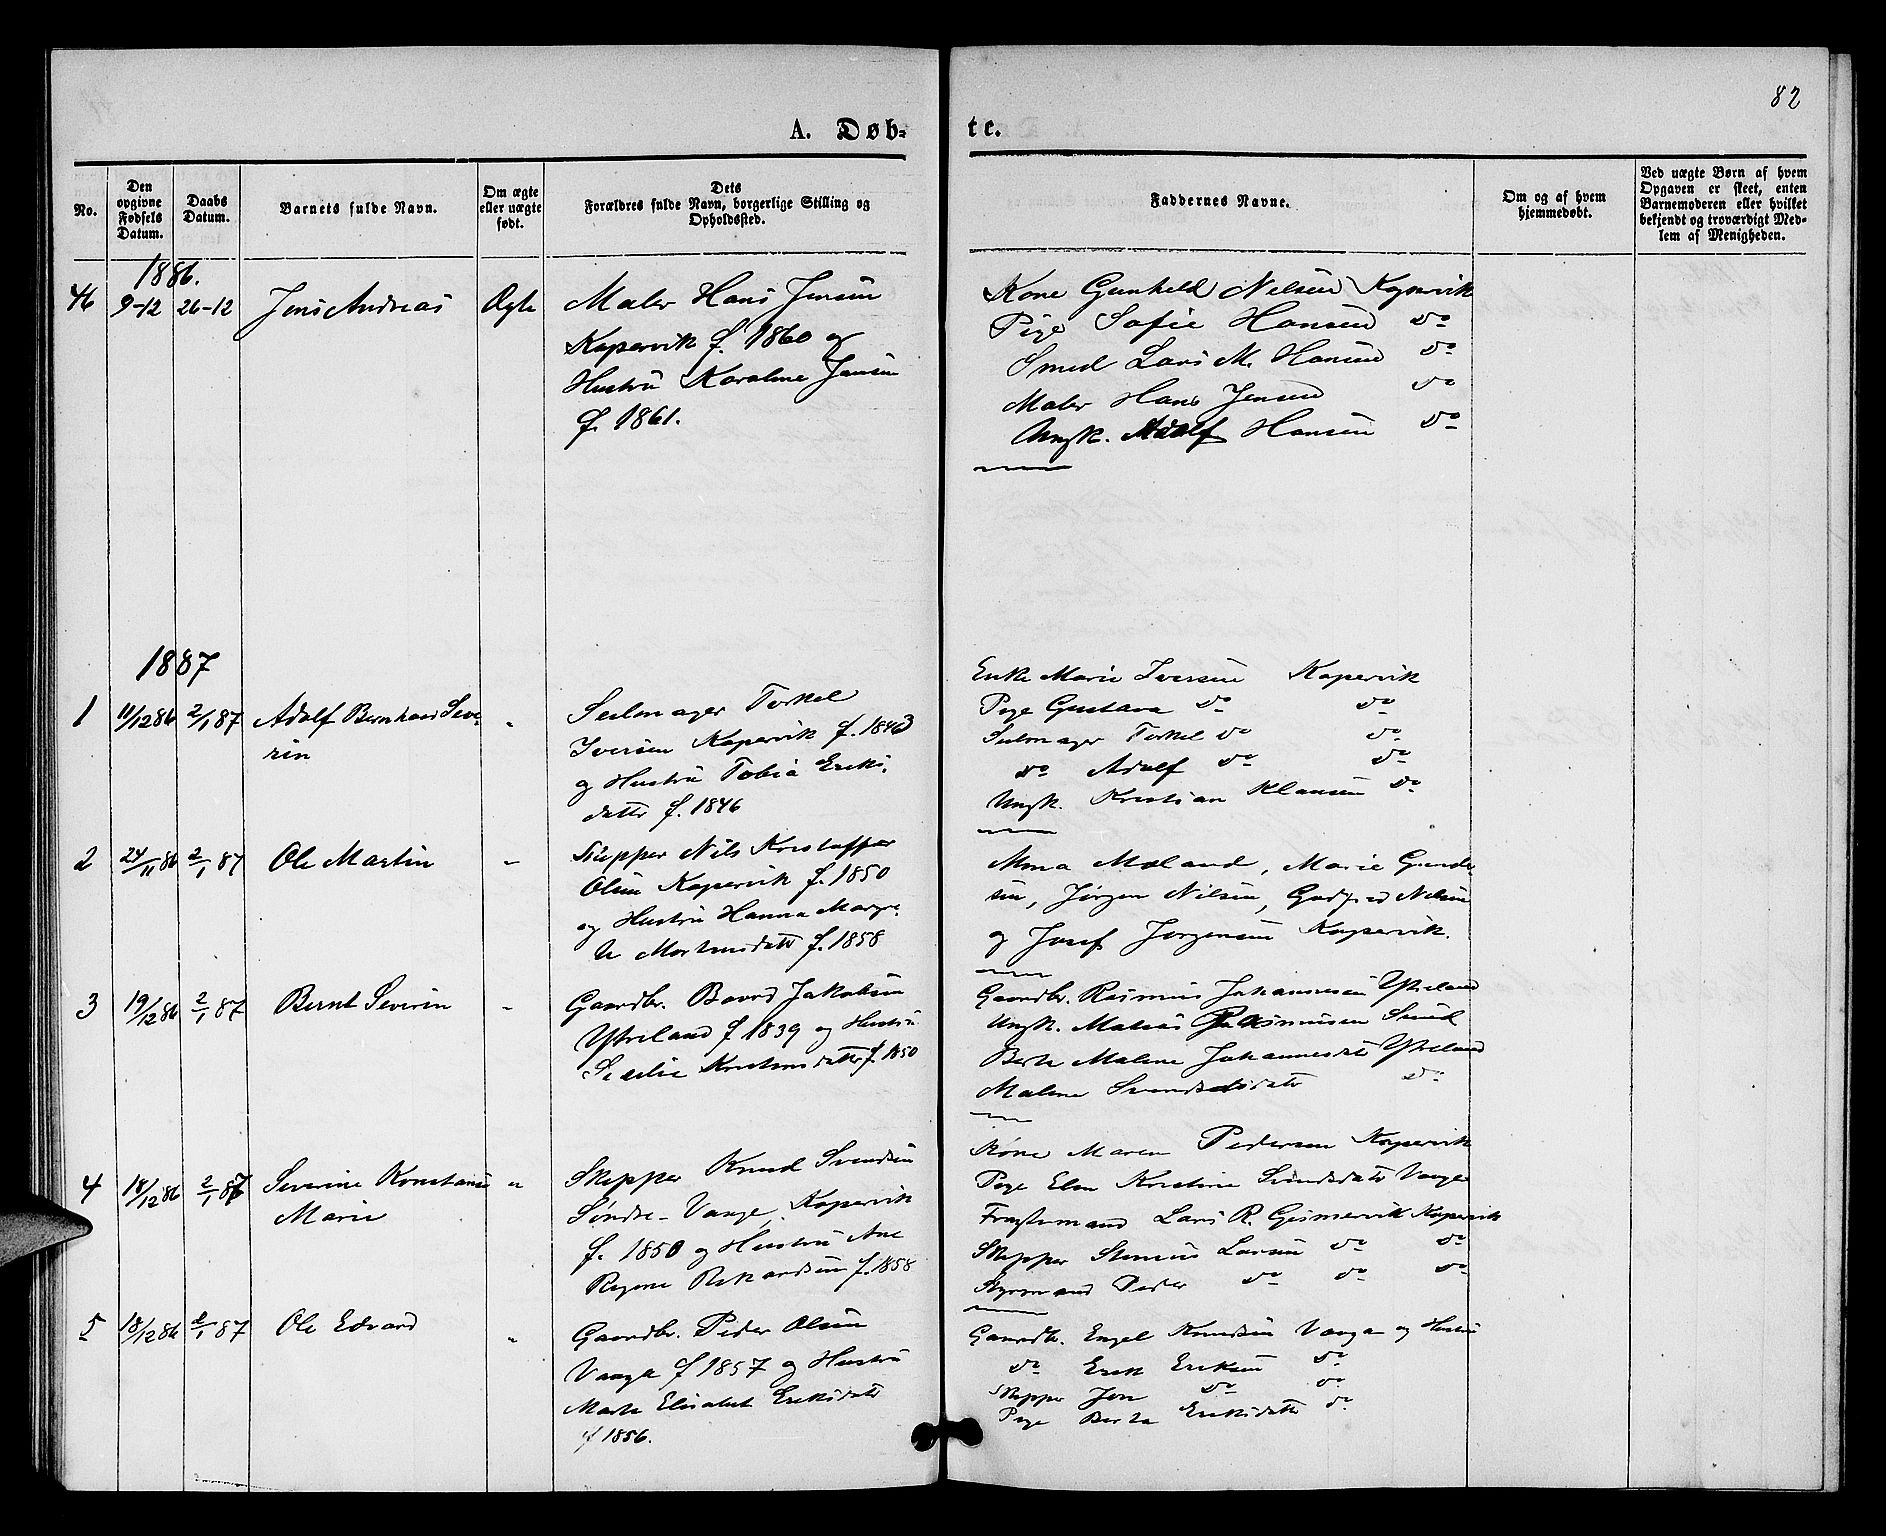 82
A. Døb-
te.
No.
Den opgivne Fødsels Datum.
Daabs Datum.
Barnets fulde Navn.
Om ægte eller uægte født.
Dets Forældres fulde Navn, borgerlige Stilling og Opholdssted.
Faddernes Navne.
Om og af hvem hjemmedøbt.
Ved uægte Børn af hvem Opgaven er skeet, enten Barnemoderen eller hvilket bekjendt og troværdigt Medlem af Menigheden.
1886.
46 9-12 26-12 Jens Andreas Ægte
Maler Hans Jensen
Kopervik f. 1860 og
Hustru Karoline Jensen
f. 1861.
Kone Gunhild Nilsen Kopervik
Pige Sofie Hansen do
Smed Lars M. Hansen do
Maler Hans Jensen do
Ungk. Adolf Hansen do
1887
1 11/12 86 2/1 87 Adolf Bernhard Seve-
rin "
Seilmager Torkel
Iversen Kopervik f. 1843
og Hustru Tobia Eriks-
datter f. 1846
Enke Marie Iversen Kopervik
Pige Gustava do do
Seilmager Torkel do do
do Adolf do do
Ungk. Kristian Klausen do
2 24/11 86 2/1 87 Ole Martin "
Skipper Nils Kristoffer
Olsen Kopervik f. 1850
og Hustru Hanna Margre-
te Mortensdatt f. 1858
Anna Mæland, Marie Gunde
sen, Jørgen Nilsen, Godfred Nilsen
og Josef Jørgensen Kopervik.
3 19/12 86 2/1 87 Bernt Severin "
Gaardbr. Baard Jakobsen
Ytreland f 1839 og Hustru
Secilie Kristensdatter f. 1850
Gaardbr. Rasmus Johannesen Ytreland
Ungk. Matias Rasmussen
Berte Malene Johannesdatt Ytreland
Malene Svendsdatt do
4 18/12 86 2/1 87 Severine Konstanse "
Marie
Skipper Knud Svendsen
Søndre-Vaage, Kopervik
f. 1850 og Hustru Ane
Regine Rikardsen f. 1858
Kone Maren Pedersen Kopervik
Pige Elen Kristine Svendsdatt Vaage
Fragtemand Lars R. Geismervik Kopervik
Skipper Larsen do do
Styrmand Peder do do do
5 18/12 86 2/1 87 Ole Edvard "
Gaardbr. Peder Olsen
Vaage f 1857 og Hustru
Marta Elisabet Eriksdatt
f 1856.
Gaardbr. Engel Knudsen Vaage og Hustru
do Erik Eriksen do
Skipper Jon do do
Pige Berte Eriksdatter do